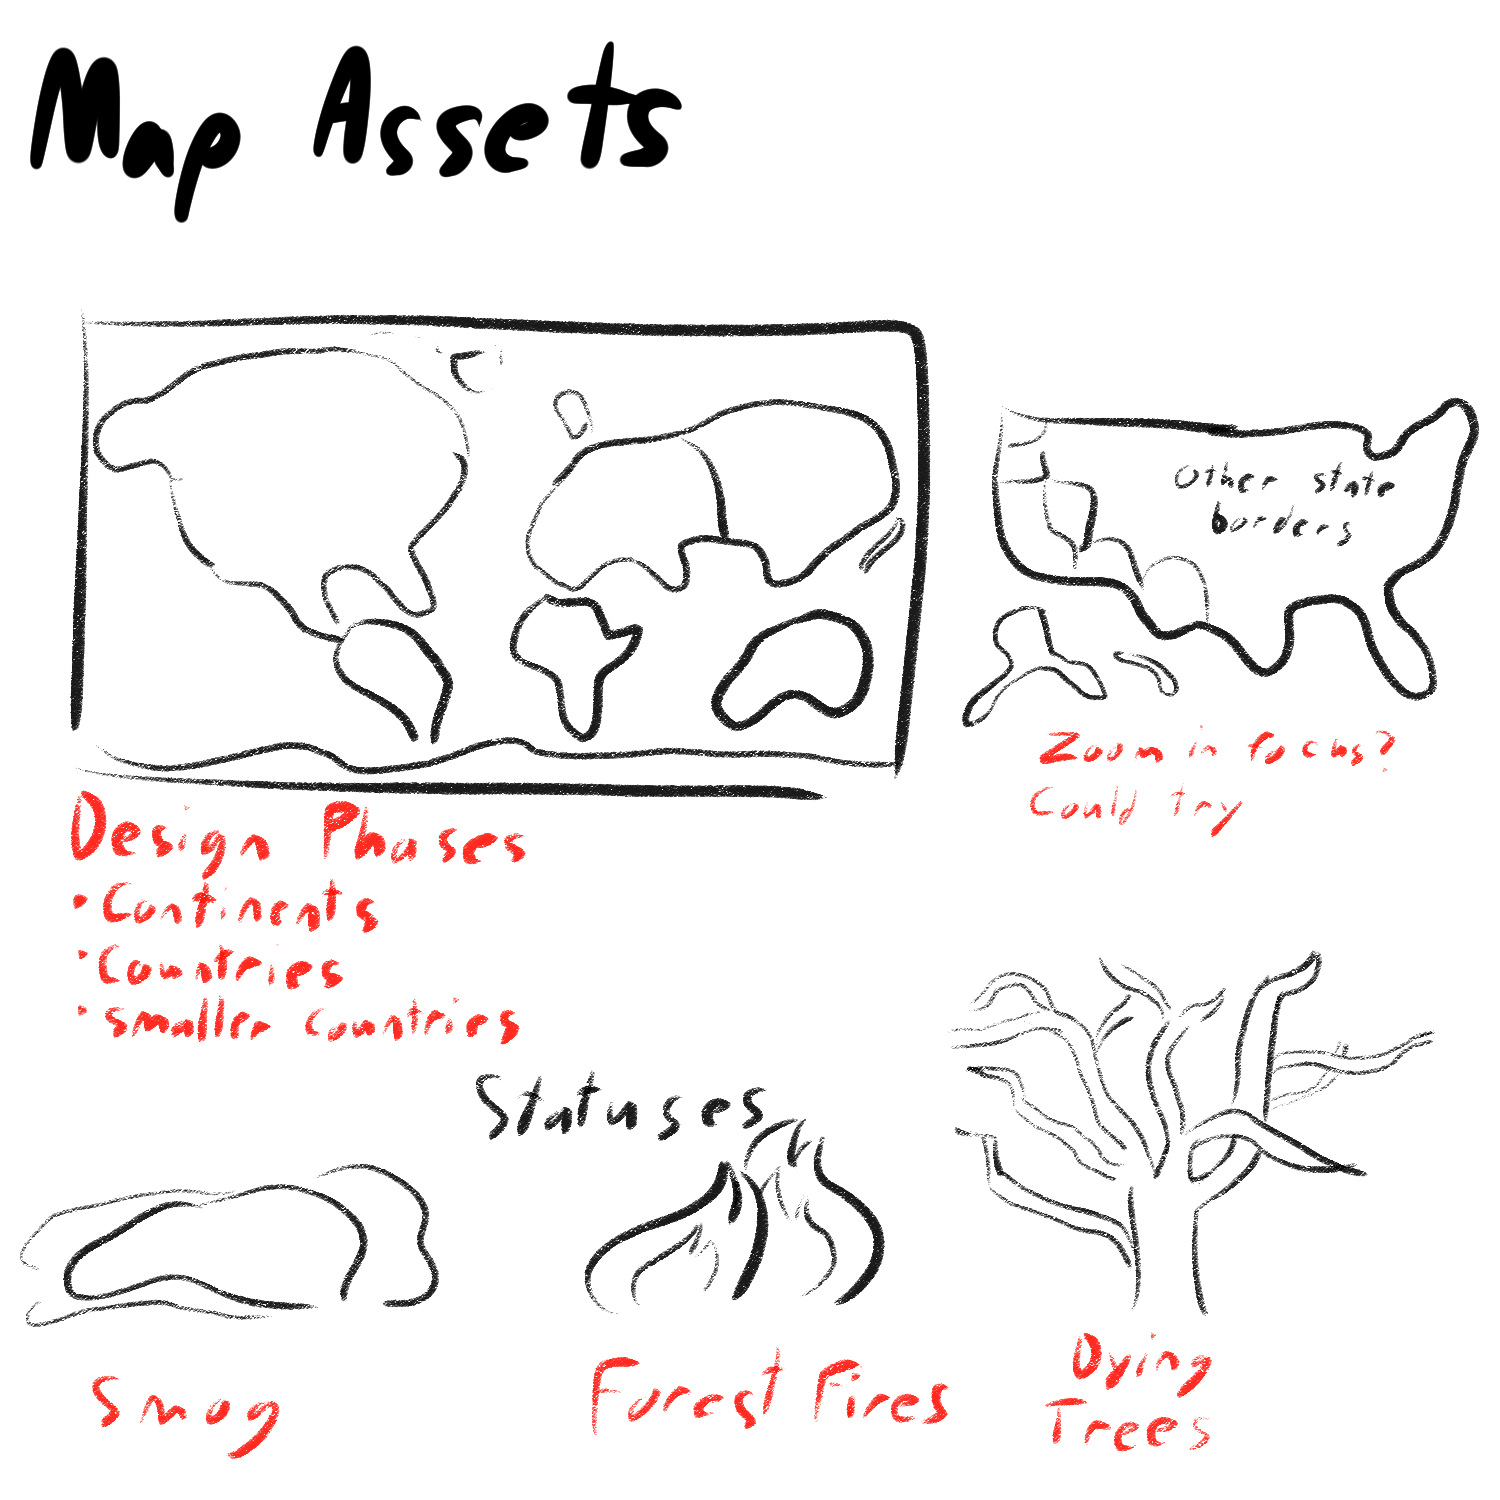 Map Assets
Other state
borders
Zoom in focus?
Could try
Design Phases
• Continents
• Countries
• Smaller countries
Statuses
Smog
Forest Fires
Dying
Trees